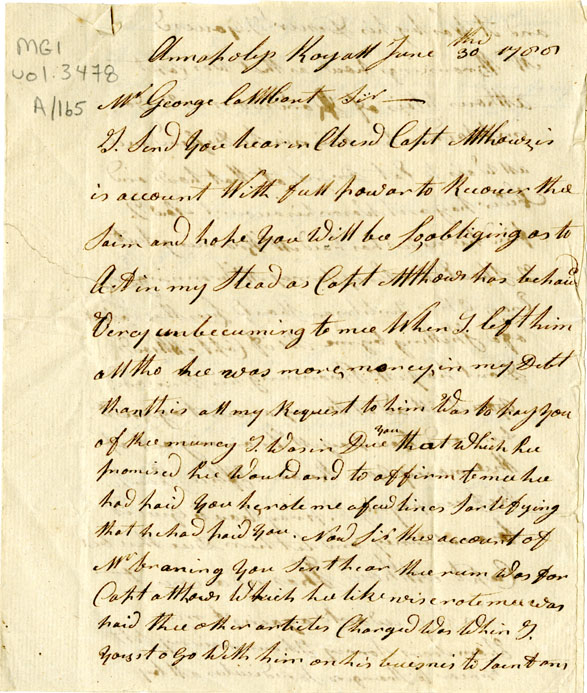 MG1
vol. 3478
A/165
Annapolis Royall June the 30 1788
Mr George Sir
I Send You hear in Closed Capt Atthows,is
is account With full powar to Recover the
saim and hope You Will bee So obliging as to
Act in my Stead as Capt Atthows has behaived
Verey unbecuming to mee When I left him
alltho hee was more money in my Debt
than this all my Request to him Was to pay You
of the muney I Was in Due You that Which hee
promised hee Would and to affirm to mee hee
had paid You he rote me afued lines sartefying
that he had paid You. Now Sir the account of
Mr braning You Sent hear the rum Was for
Capt atthows Which hee like wise rote mee was
paid thee other articles Charged Was When I
Yous to Go With him on his buisnis to Saint